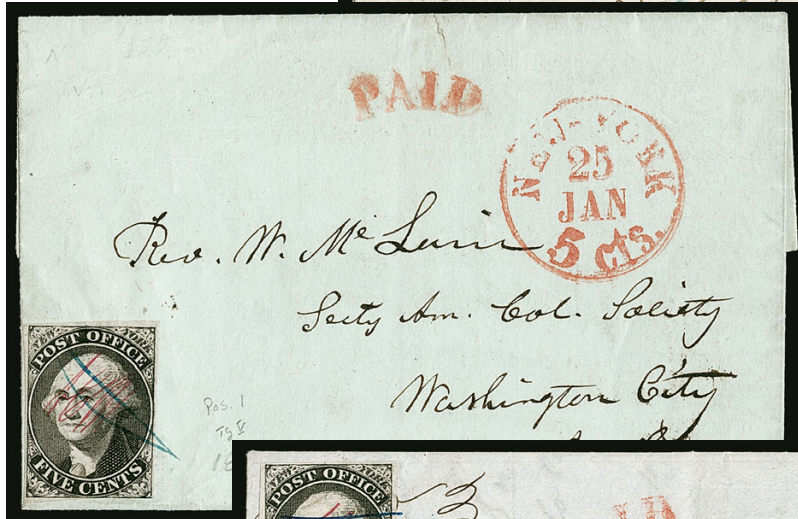 PAID
NEW-YORK
25
JAN
5 Cts.
Rev. W. Mc Lain
Secty Am. Col. Society
Washington City
POST OFFICE
FIVE CENTS
Pos. 1
POST OFFICE